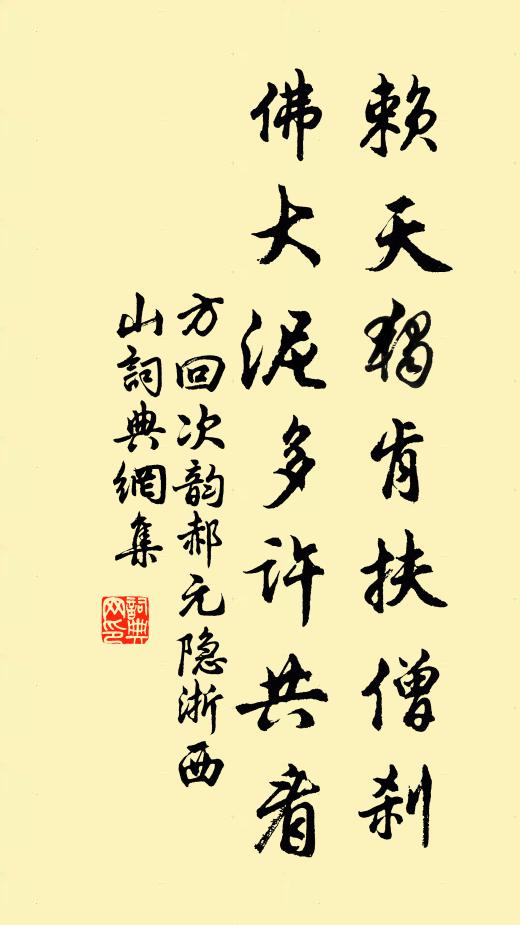 赖天独肯扶僧刹
佛大泥多许共看
方回次韵郝元隐浙西
山詞典網集
詞典
网印